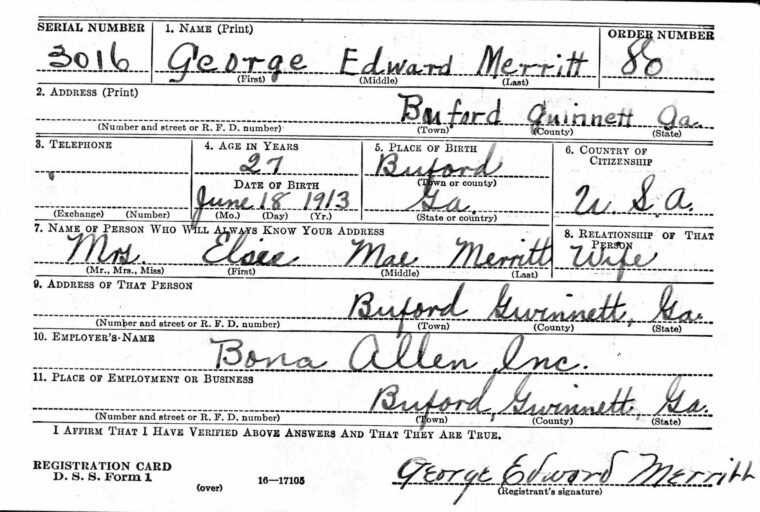 SERIAL NUMBER 1. NAME (Print) ORDER NUMBER
3016 George Edward Merritt 80
(First) (Middle) (Last)
2. ADDRESS (Print)
Buford Guinnett Ga.
(Number and street or R. F. D. number) (Town) (County) (State)
3. TELEPHONE 4. AGE IN YEARS 5. PLACE OF BIRTH 6. COUNTRY OF CITIZENSHIP
27 Buford
DATE OF BIRTH (Town or county)
June 18 1913 Ga. U. S. A.
(Exchange) (Number) (Mo.) (Day) (Yr.) (State or country)
7. NAME OF PERSON WHO WILL ALWAYS KNOW YOUR ADDRESS 8. RELATIONSHIP OF THAT PERSON
Mrs. Elsie Mae Merritt Wife
(Mr., Mrs., Miss) (First) (Middle) (Last)
9. ADDRESS OF THAT PERSON
Buford Gwinnett, Ga.
(Number and street or R. F. D. number) (Town) (County) (State)
10. EMPLOYER'S NAME
Bona Allen Inc.
11. PLACE OF EMPLOYMENT OR BUSINESS
Buford, Gwinnett, Ga.
(Number and street or R. F. D. number) (Town) (County) (State)
I AFFIRM THAT I HAVE VERIFIED ABOVE ANSWERS AND THAT THEY ARE TRUE.
REGISTRATION CARD
D. S. S. Form 1 (over) 16—17105 George Edward Merritt
(Registrant's signature)